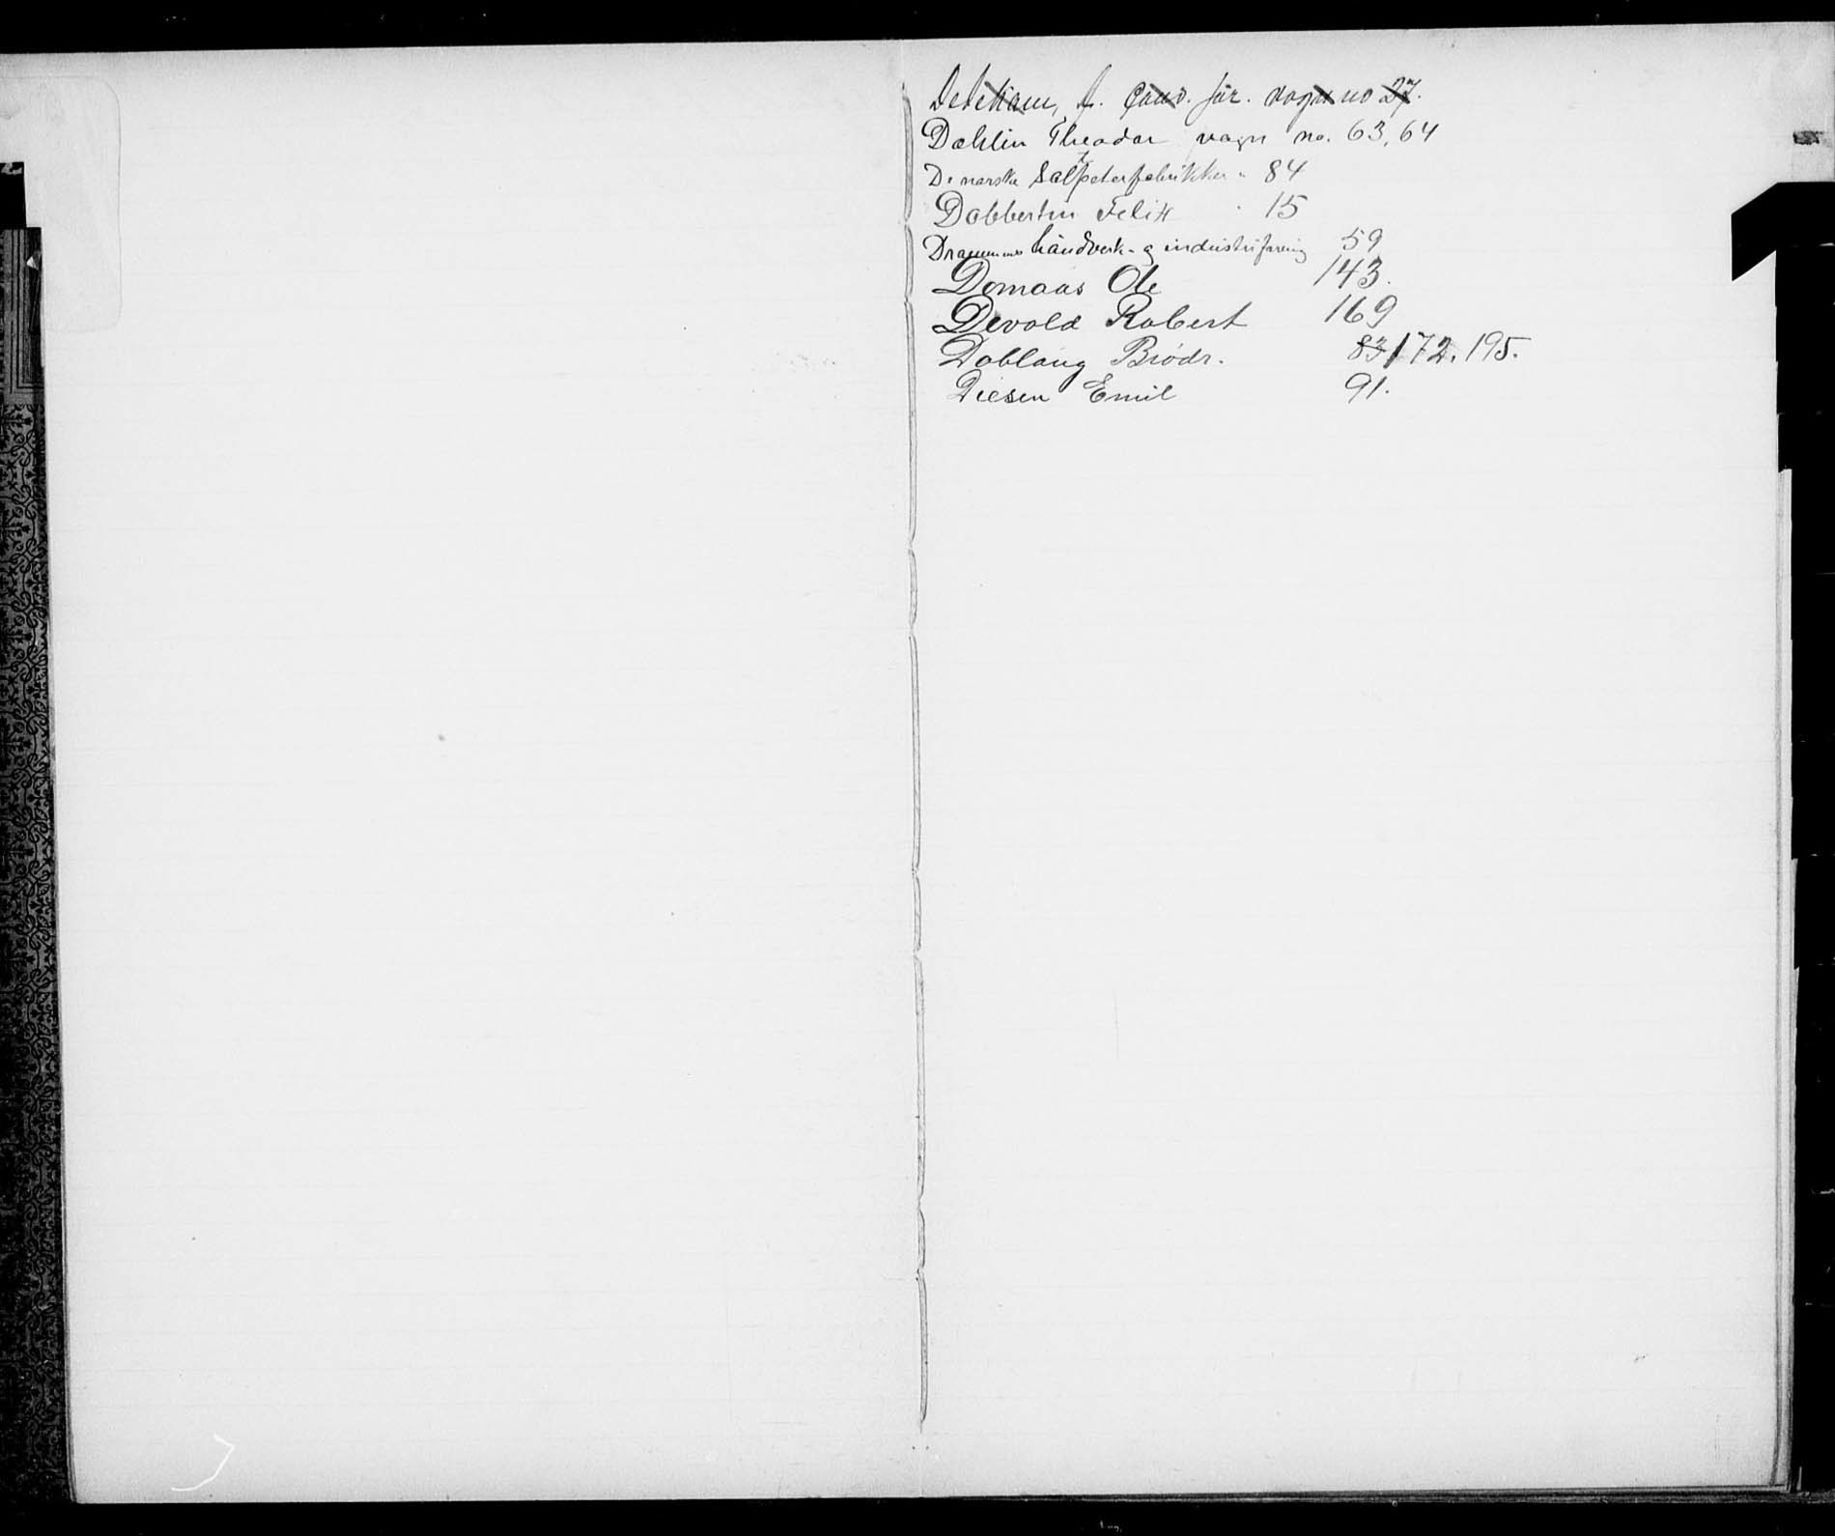 Dedekam, A. Cand. jur. vogn no 27.
Dahlin Theodor vogn no. 63, 64
De norske Salpeterfabrikker " 84
Dobbertin Felix " 15
Drammens håndverk- og industriforening 59
Domaas Ole 143.
Devold Robert 169
Dobloug Brödr. 83 172. 195.
Diesen Emil 91.